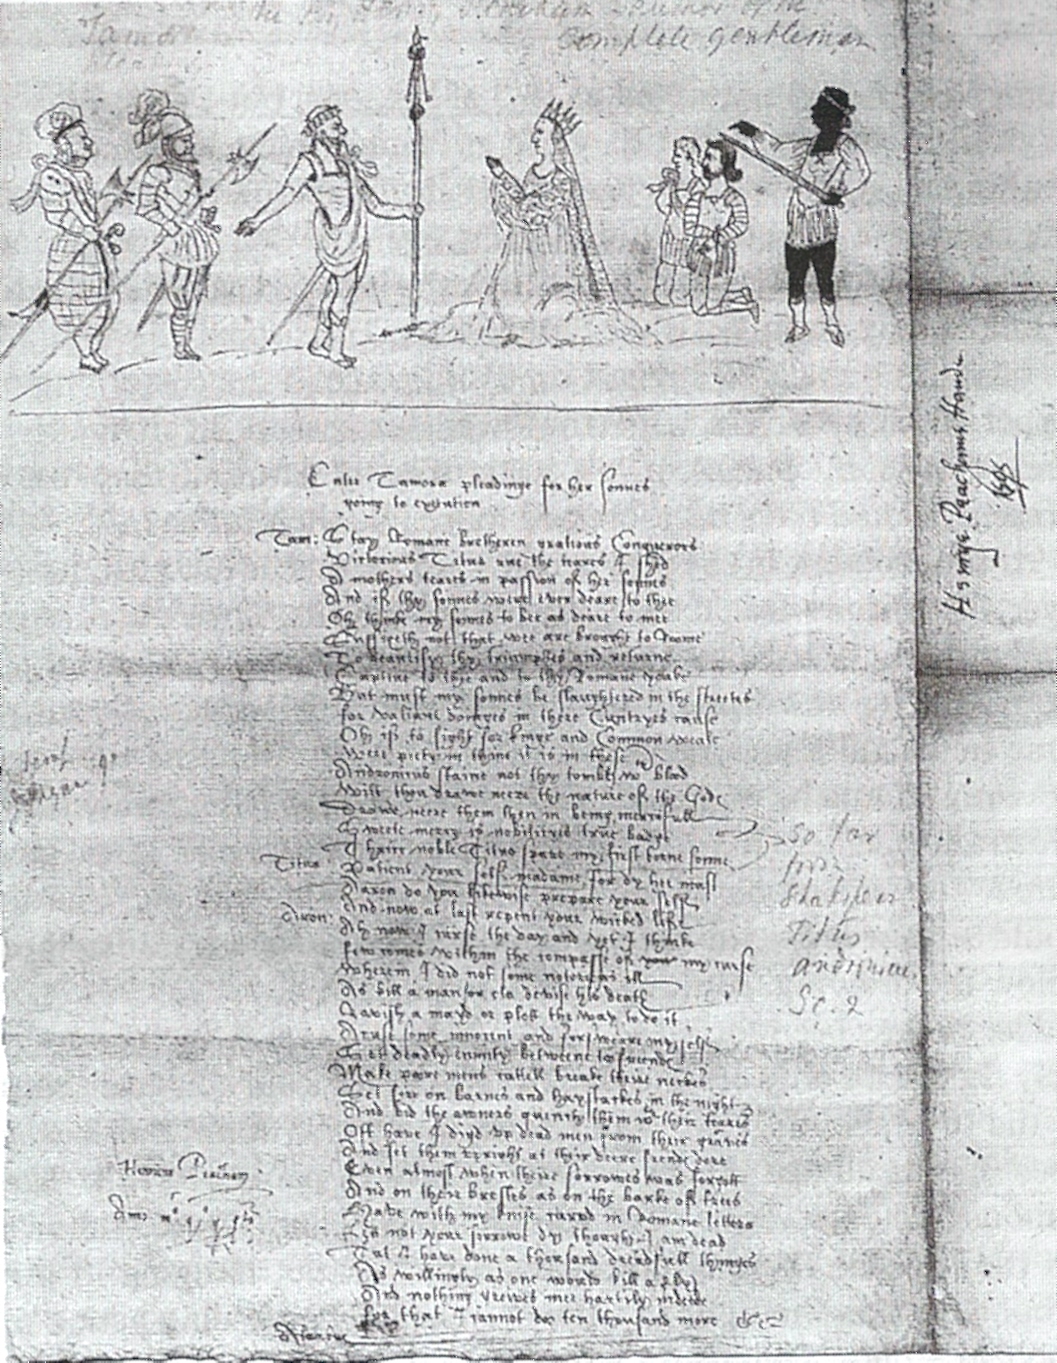 complete gentleman
Enter Tamora pleadinge for her sonnes
going to execution
Tam: Stay Romane bretheren gratious Conquerors
Victorious Titus rue the teares I shed
A mothers teares in passion of her sonnes
And if thy sonnes were ever deare to thee
Oh thinke my sonnes to bee as deare to mee
Suffizeth not that wee are brought to Roome
To beautify thy triumphes and returne
Captiue to thee and to thy Romane yoake
But must my sonnes be slaughtered in the streetes
for valiant doinges in there Cuntryes cause
Oh if to fight for kinge and Common weale
Were piety in thine it is in these
Andronicus staine not thy tombe wth blood
Wilt thou drawe neere the nature of the Gods
Drawe neere them then in being mercifull
Sweete mercy is nobilityes true badge
Thrice noble Titus spare my first borne sonne
Titus: Patient your self madame for dy hee must
Aaron do you likewise prepare your self
And now at last repent your wicked life
Aron: Ah now I curse the day and yet I thinke
few comes within the compasse of my curse
Wherein I did not some notorious ill
As kill a man or els devise his death
Ravish a mayd or plott the way to do it
Acuse some innocent and forsweare myself
Set deadly enmity betweene two freendes
Make poore mens cattell breake theire neckes
Set fire on barnes and haystackes in the night
And bid the owners quench them wth their teares
Oft have I digd vp dead men from their graves
And set them vpright at their deere frends dore
Even almost when theire sorrowes was forgott
And on their brestes as on the barke of trees
Have with my knife carvd in Romane letters
Lett not your sorrowe dy though I am dead
Tut I have done a thousand dreadfull thinges
As willingly as one would kill a fly
And nothing greives mee hartily indeede
for that I cannot doo ten thousand more &c
so far
from
Shakspear
Titus
Andronicus
Sc. 2
Henrye Peachams Hand
1595